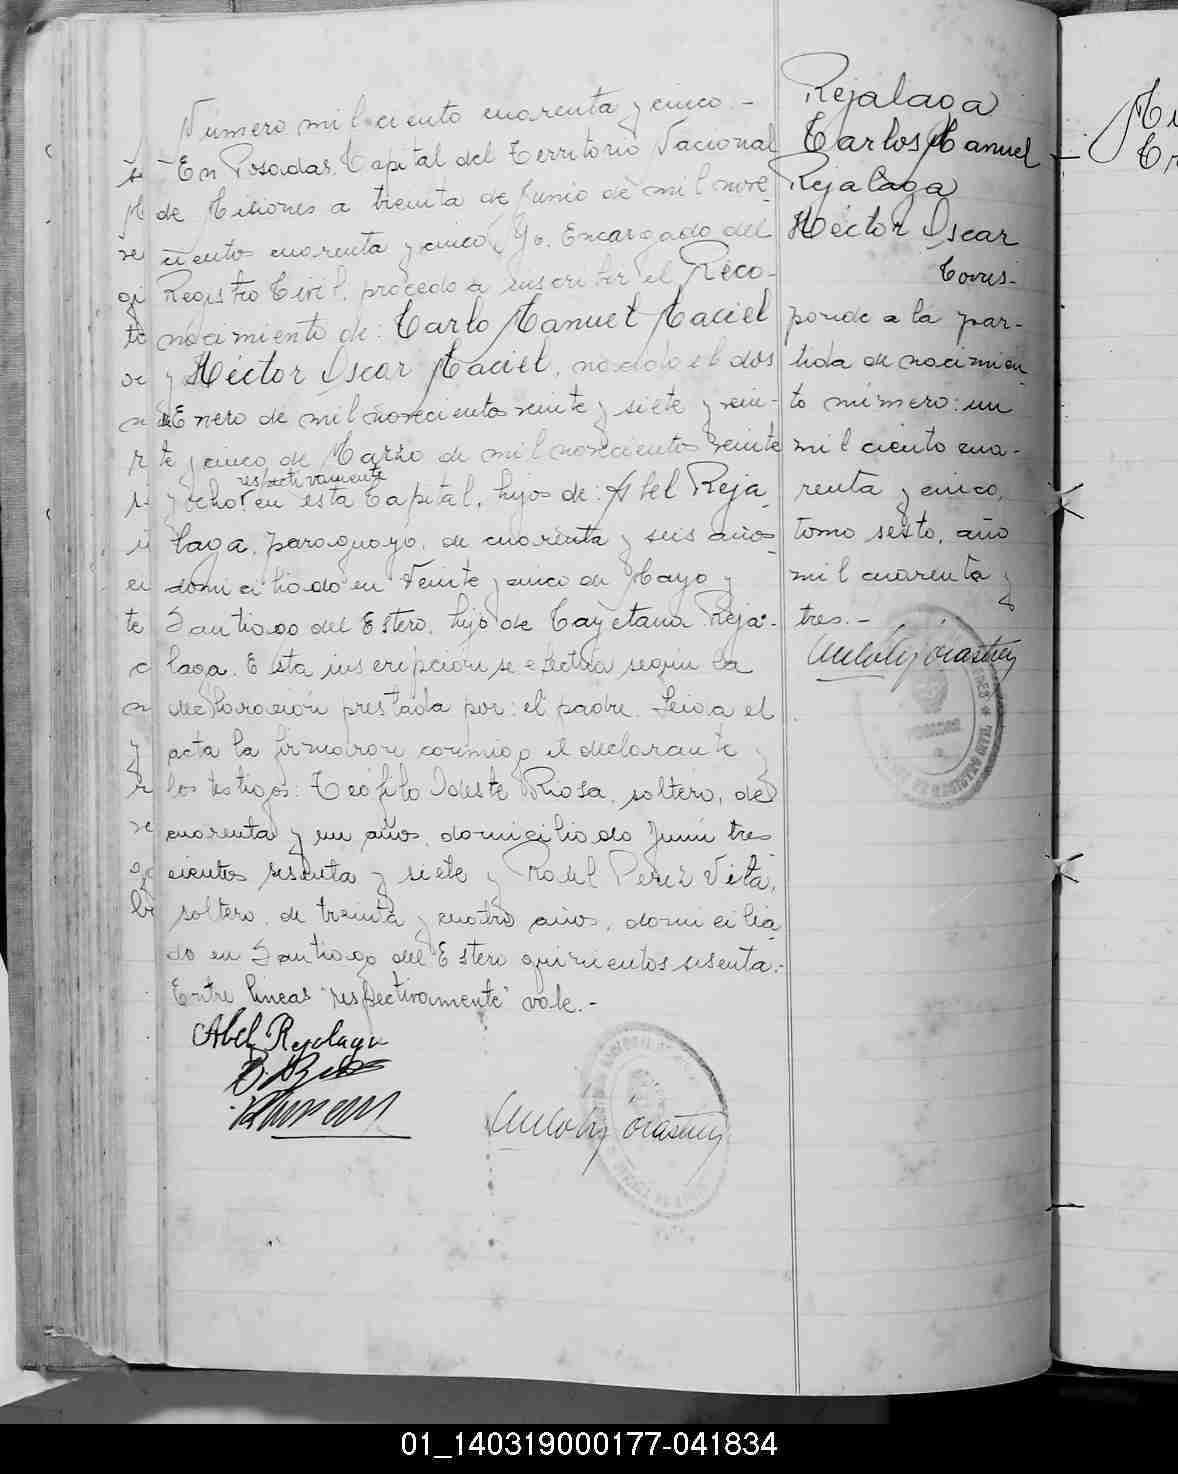 Número mil ciento cuarenta y cinco.-
-En Posadas, Capital del Territorio Nacional
de Misiones a treinta de Junio de mil nove
cientos cuarenta y cinco, Yo, Encargado del
Registro Civil, procedo a inscribir el Reco-
nocimiento de: Carlo Manuel Maciel
y Héctor Oscar Maciel, nacido el dos
de Enero de mil novecientos veinte y siete y vein-
te y cinco de Marzo de mil novecientos veinte
respectivamente
y ocho en esta Capital, hijos de: Abel Reja
laga, paraguayo, de cuarenta y seis años
domiciliado en Veinte y cinco de Mayo y
Santiago del Estero, hijo de Cayetana Reja-
laga. Esta inscripción se efectúa según la
declaración prestada por: el padre. Leida el
acta la firmaron conmigo el declarante y
los testigos: Teófilo Riosa, soltero, de
cuarenta y un años, domiciliado Junín tres
cientos sesenta y siete y Raúl Perez Vila,
soltero, de treinta y cuatro años, domicilia
do en Santiago del Estero quinientos sesenta.-
Entre lineas "respectivamente" vale.-
Abel Rejalaga
Rejalaga
Carlos Manuel
Rejalaga
Héctor Oscar
Corres-
ponde a la par-
tida de nacimien-
to número: un
mil ciento cua-
renta y cinco,
tomo sexto, año
mil cuarenta y
tres.-
01_140319000177-041834